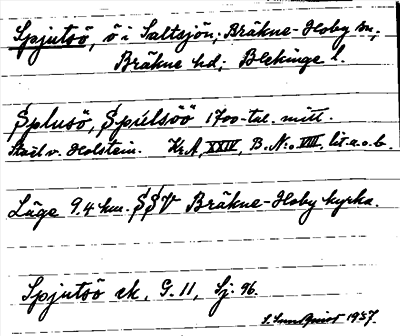 Spjutsö, ö i Saltsjön; Bräkne-Hoby sn;
Bräkne hd; Blekinge l.
Splusö, Spiulsöö 1700-tal. mitt.
Stael v. Holstein. Kr.A, XXIV, B. N:o VIII, lit. a.o.b.
Läge 9.4 km. SSV Bräkne-Hoby kyrka.
Spjutsö ek. G. 11, Sj. 96.
S. Sundquist 1937.